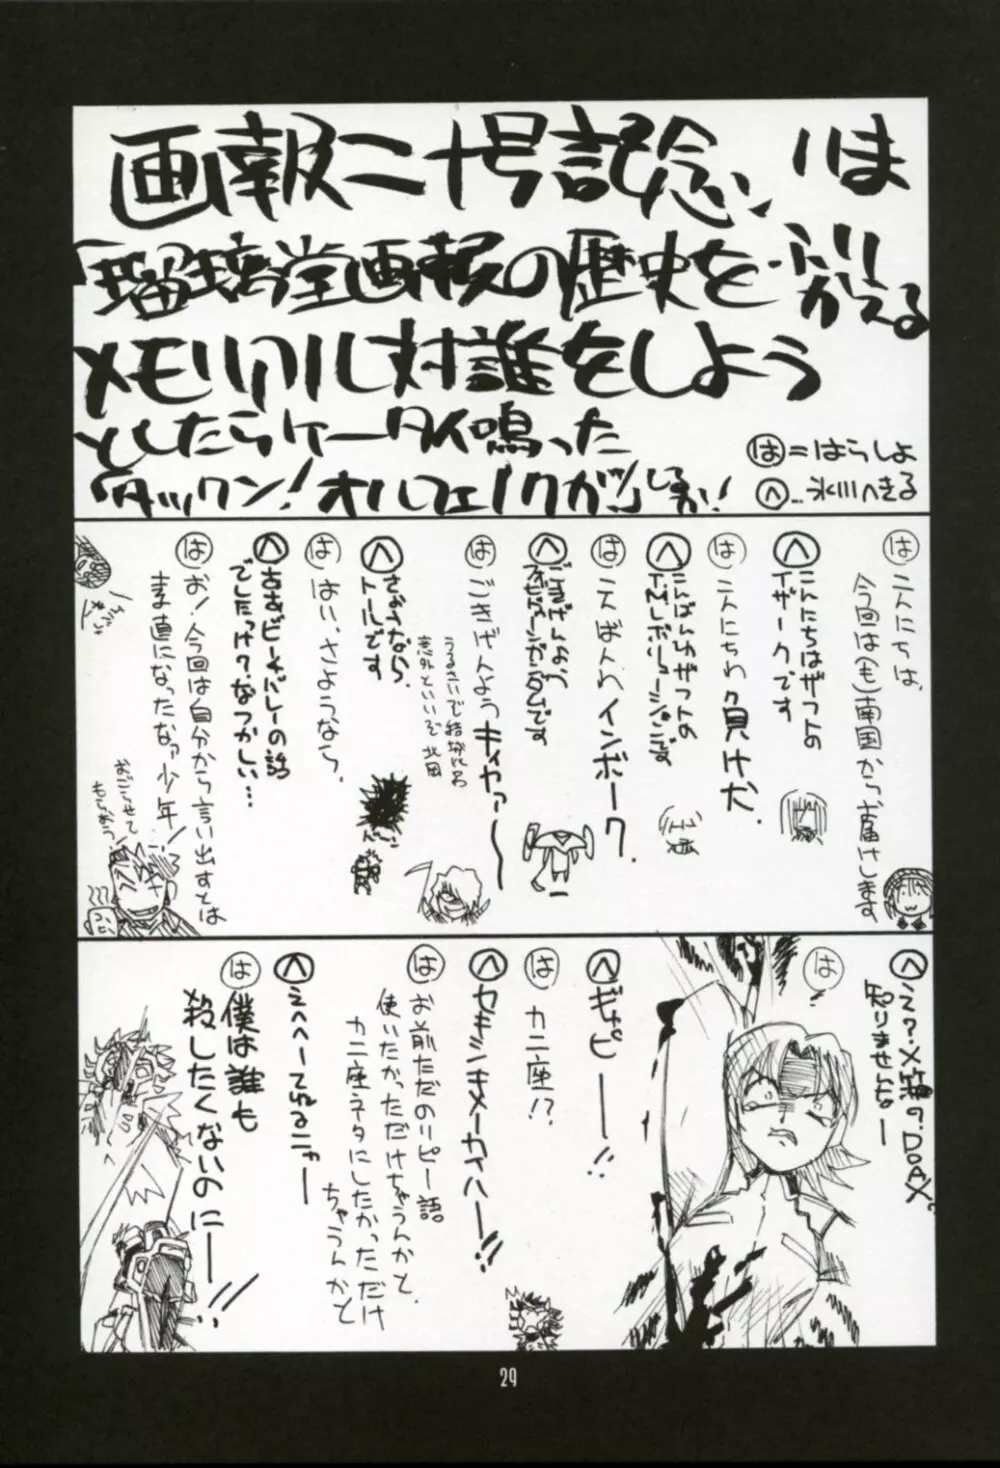 画報二十号記念、いま
「瑠璃堂画報の歴史をふりかえる
メモリアル対談をしよう
としたらケータイ鳴った
「タックン!オルフェノクがッ」しるか!
は=はらしよ
へ…氷川へきる
は こんにちは、
今回は(も)南国からお届けします
へ こんにちはザフトの
イザークです
は こんにちわ負け犬.
へ こんばんわザフトの
は こんばんわインボーク.
へ ごきげんよう
は ごきげんようキィヤァ〜
へ さようなら.
トールです
は はい、さようなら.
へ ああビーチバレーの話
でしたっけ?なつかしい…
は お!今回は自分から言い出すとは
ま直になったなァ少年!
おごらせて
もらおう!
へ え?×箱の?DOAX?
知りませんよー
は !
へ ギャピーー!!
は カニ座!?
へ ヤキンキメーカイハー!!
は お前ただのリピー語.
使いたかっただけちゃうんかと.
カニ座ネタにしたかっただけ
ちゃうんかと
へ えへへーてれるニャー
は 僕は誰も
殺したくないのにーー!!
29